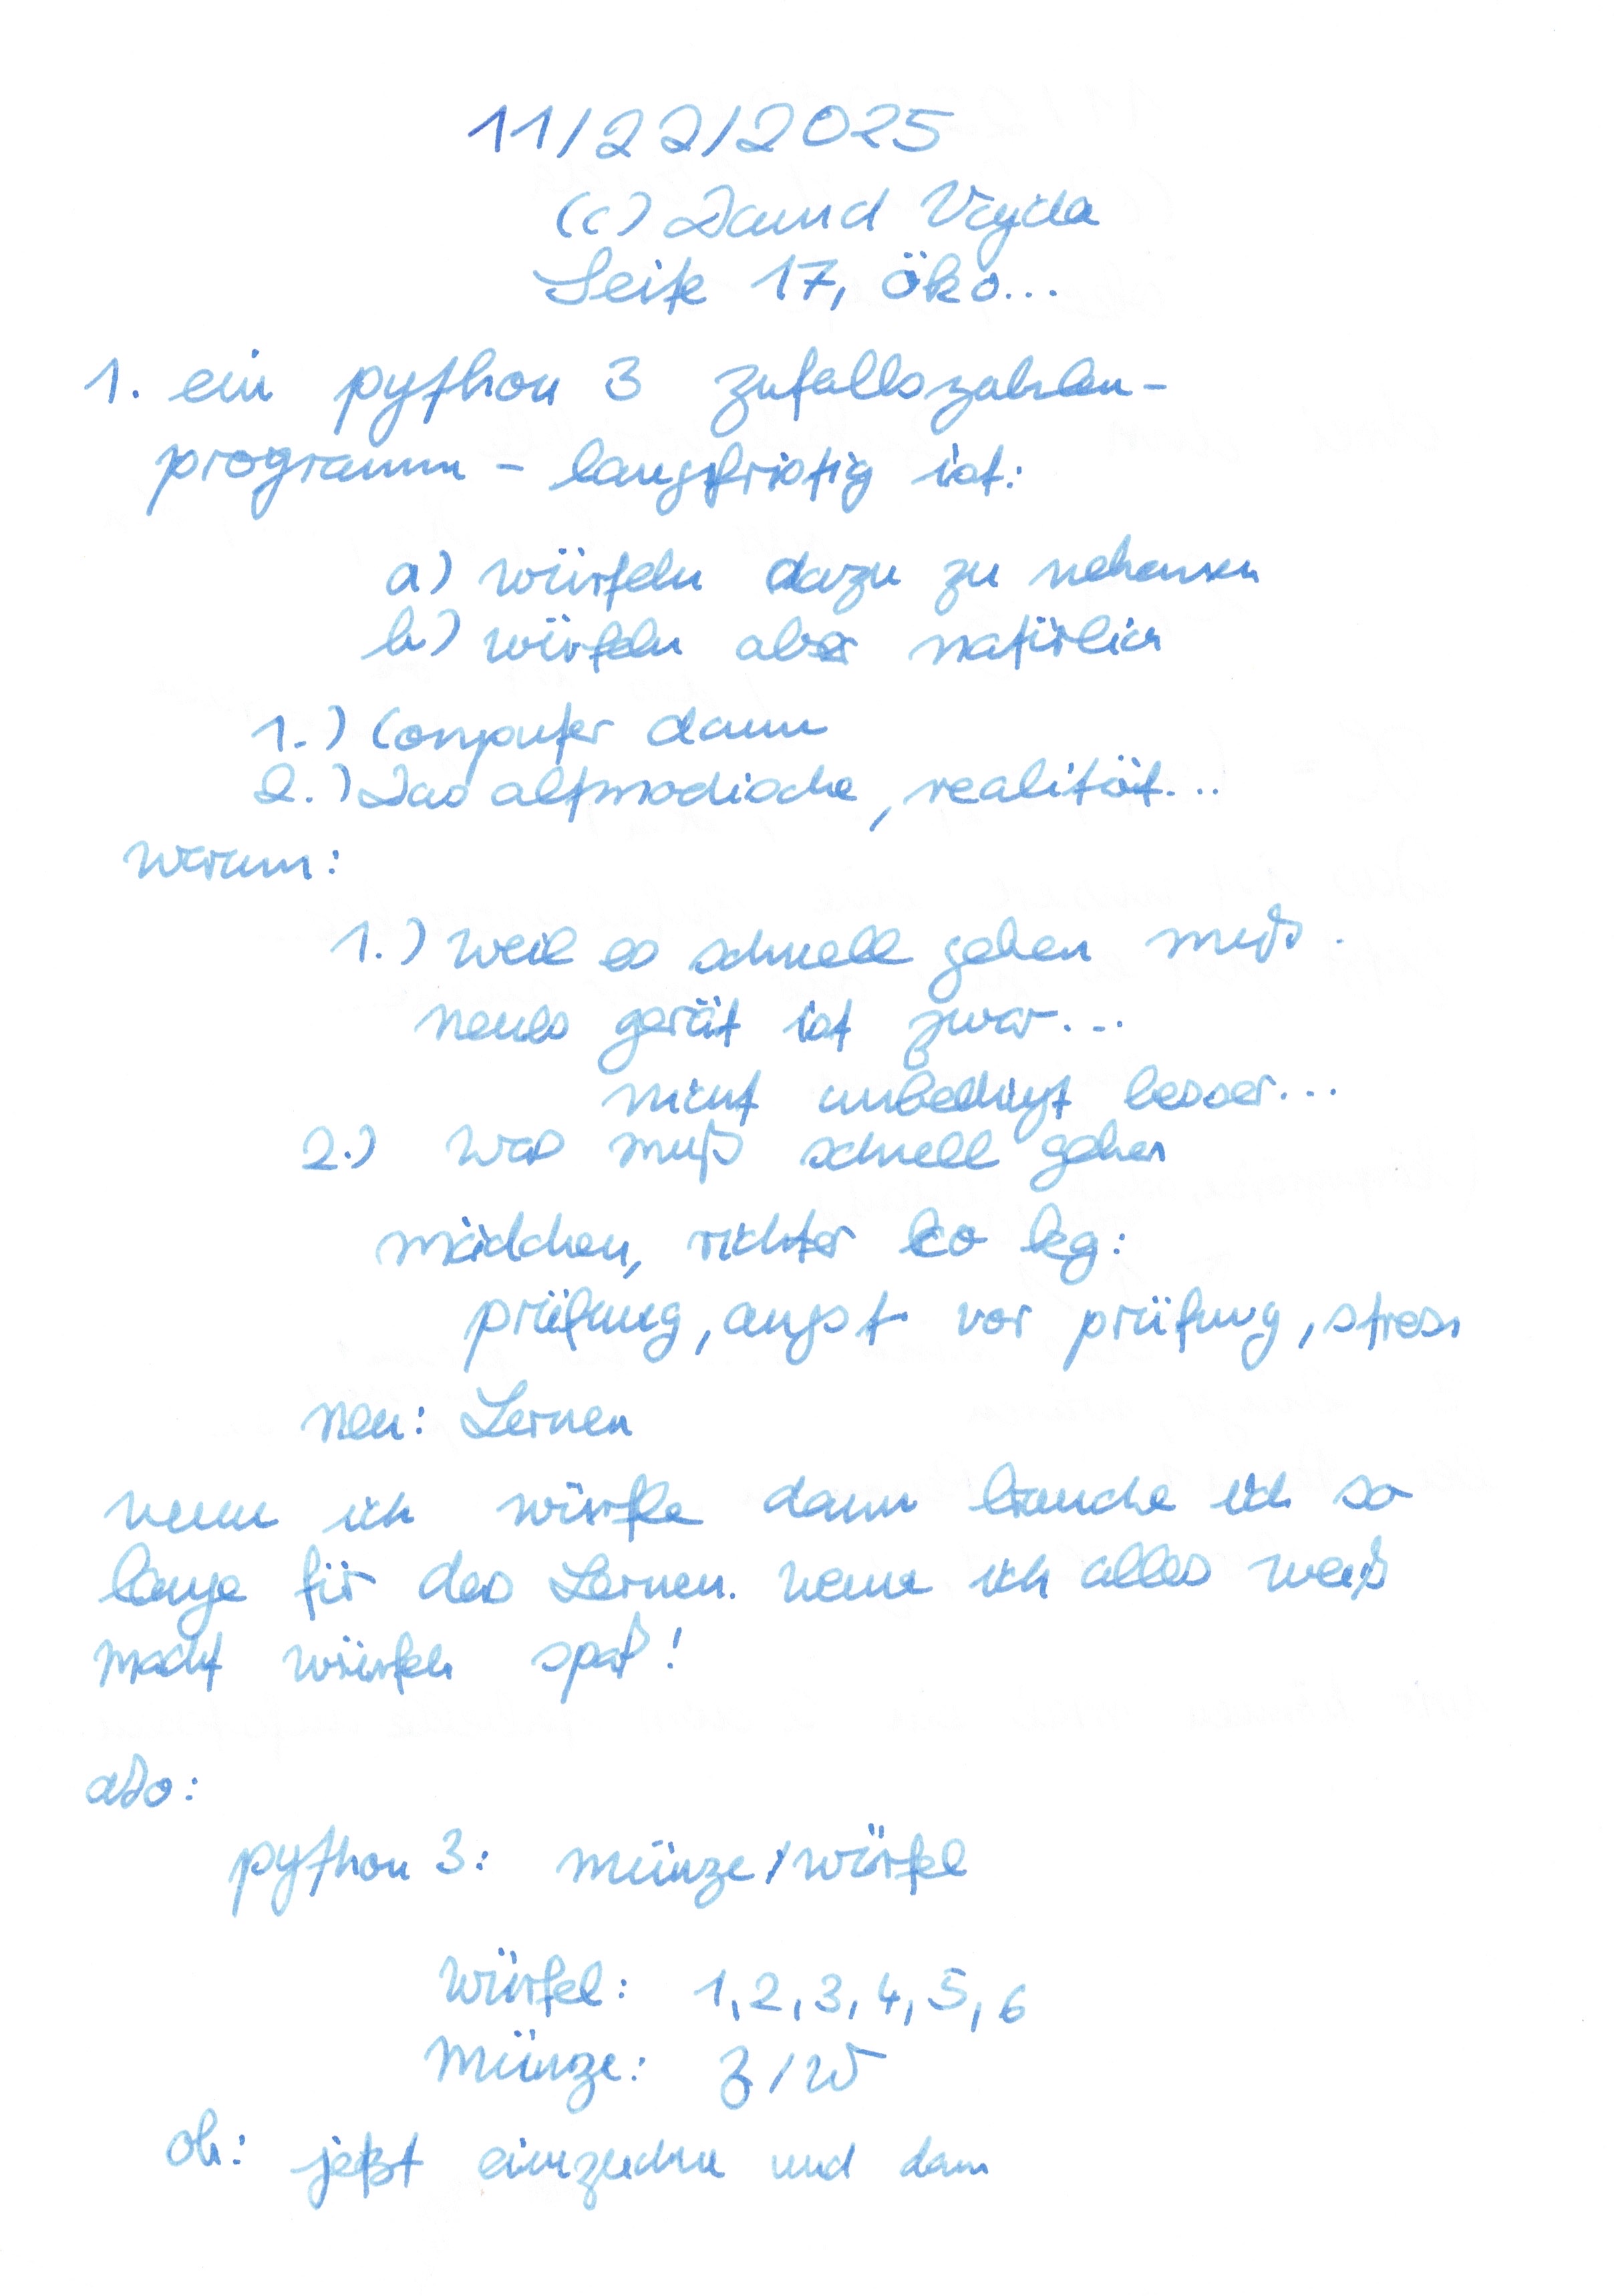 11/22/2025
(c) David Vajda
Seite 17, öko...
1. ein python 3 zufallszahlen-
programm - langfristig ist:
a) würfeln dazu zu nehmen
b) würfeln aber natürlich
1.) Computer dann
2.) Das altmodische, realität...
warum:
1.) weil es schnell gehen muß.
neues gerät ist zwar...
nicht unbedingt besser...
2.) was muß schnell gehen
mädchen, richter
prüfung, angst vor prüfung, stress
neu: Lernen
wenn ich würfle dann brauche ich so
lange für das Lernen. wenn ich alles weiß
macht würfeln spaß!
also:
python 3: münze/würfel
Würfel: 1,2,3,4,5,6
Münze: Z/W
ok: jetzt und dann